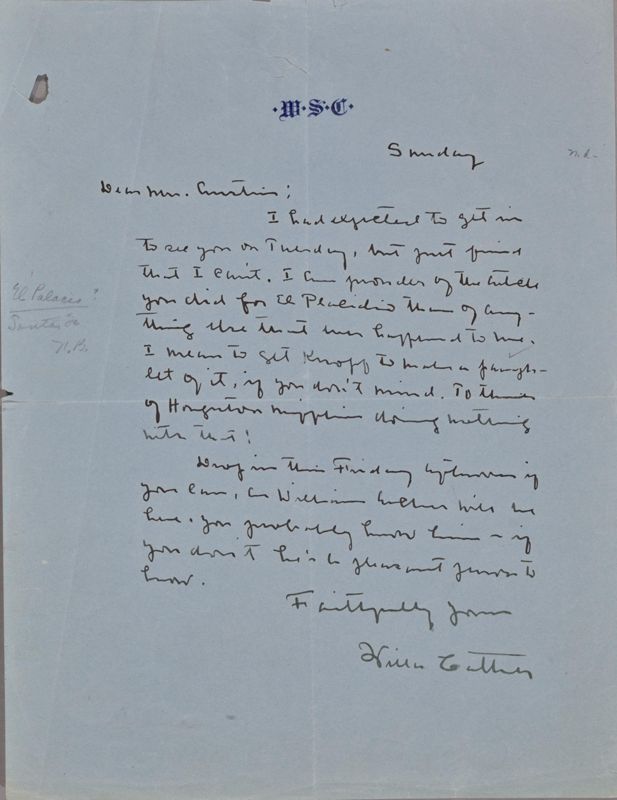 ·W·S·C·
Sunday
n.d.
Dear Mrs. Austin;
I had expected to get in
to see you on Tuesday, but just find
that I can't. I am prouder of the article
you did for El Placidio than of any-
thing else that ever happened to me.
I mean to get Knopf to make a pamph-
let of it, if you don't mind. To think
of Houghton Mifflin doing nothing
with that!
Drop in this Friday afternoon if
you can, as William Archer will be
here. You probably know him – if
you don't he's a pleasant person to
know.
Faithfully yours
Willa Cather
"El Palacio"?
Santa Fe